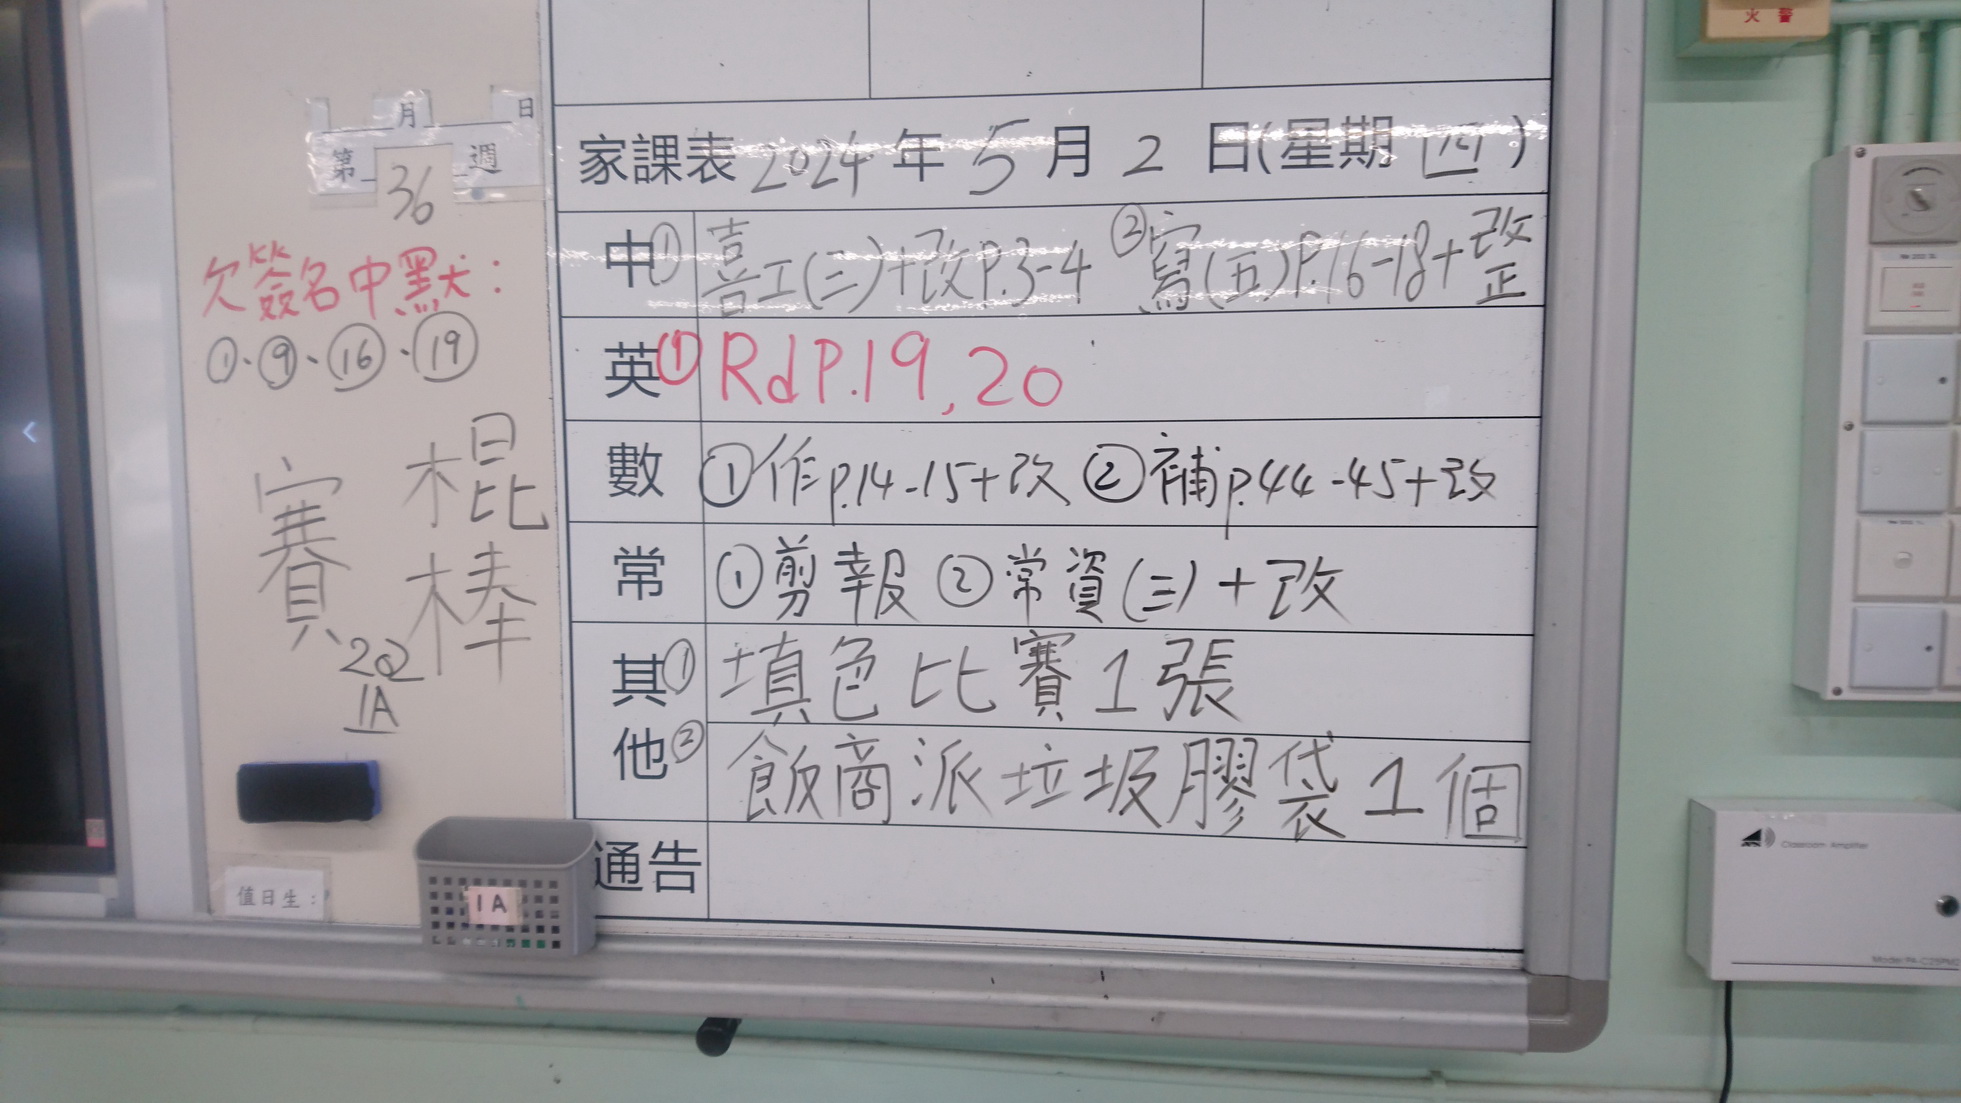 火 警
月 日
第 36 週
欠簽名中默：
①、⑨、⑯、⑲
棍棒
賽
22
1A
值日生：
1A
家課表 2024 年 5 月 2 日(星期 四)
中 ① 喜工(三)+改P.3-4 ② 寫(五)P.16-18+改正
英 ① Rd P.19, 20
數 ①作p.14-15+改 ②補p.44-45+改
常 ①剪報 ②常資(三)+改
其他 ① 填色比賽1張
② 飯商派垃圾膠袋1個
通告
Classroom Amplifier